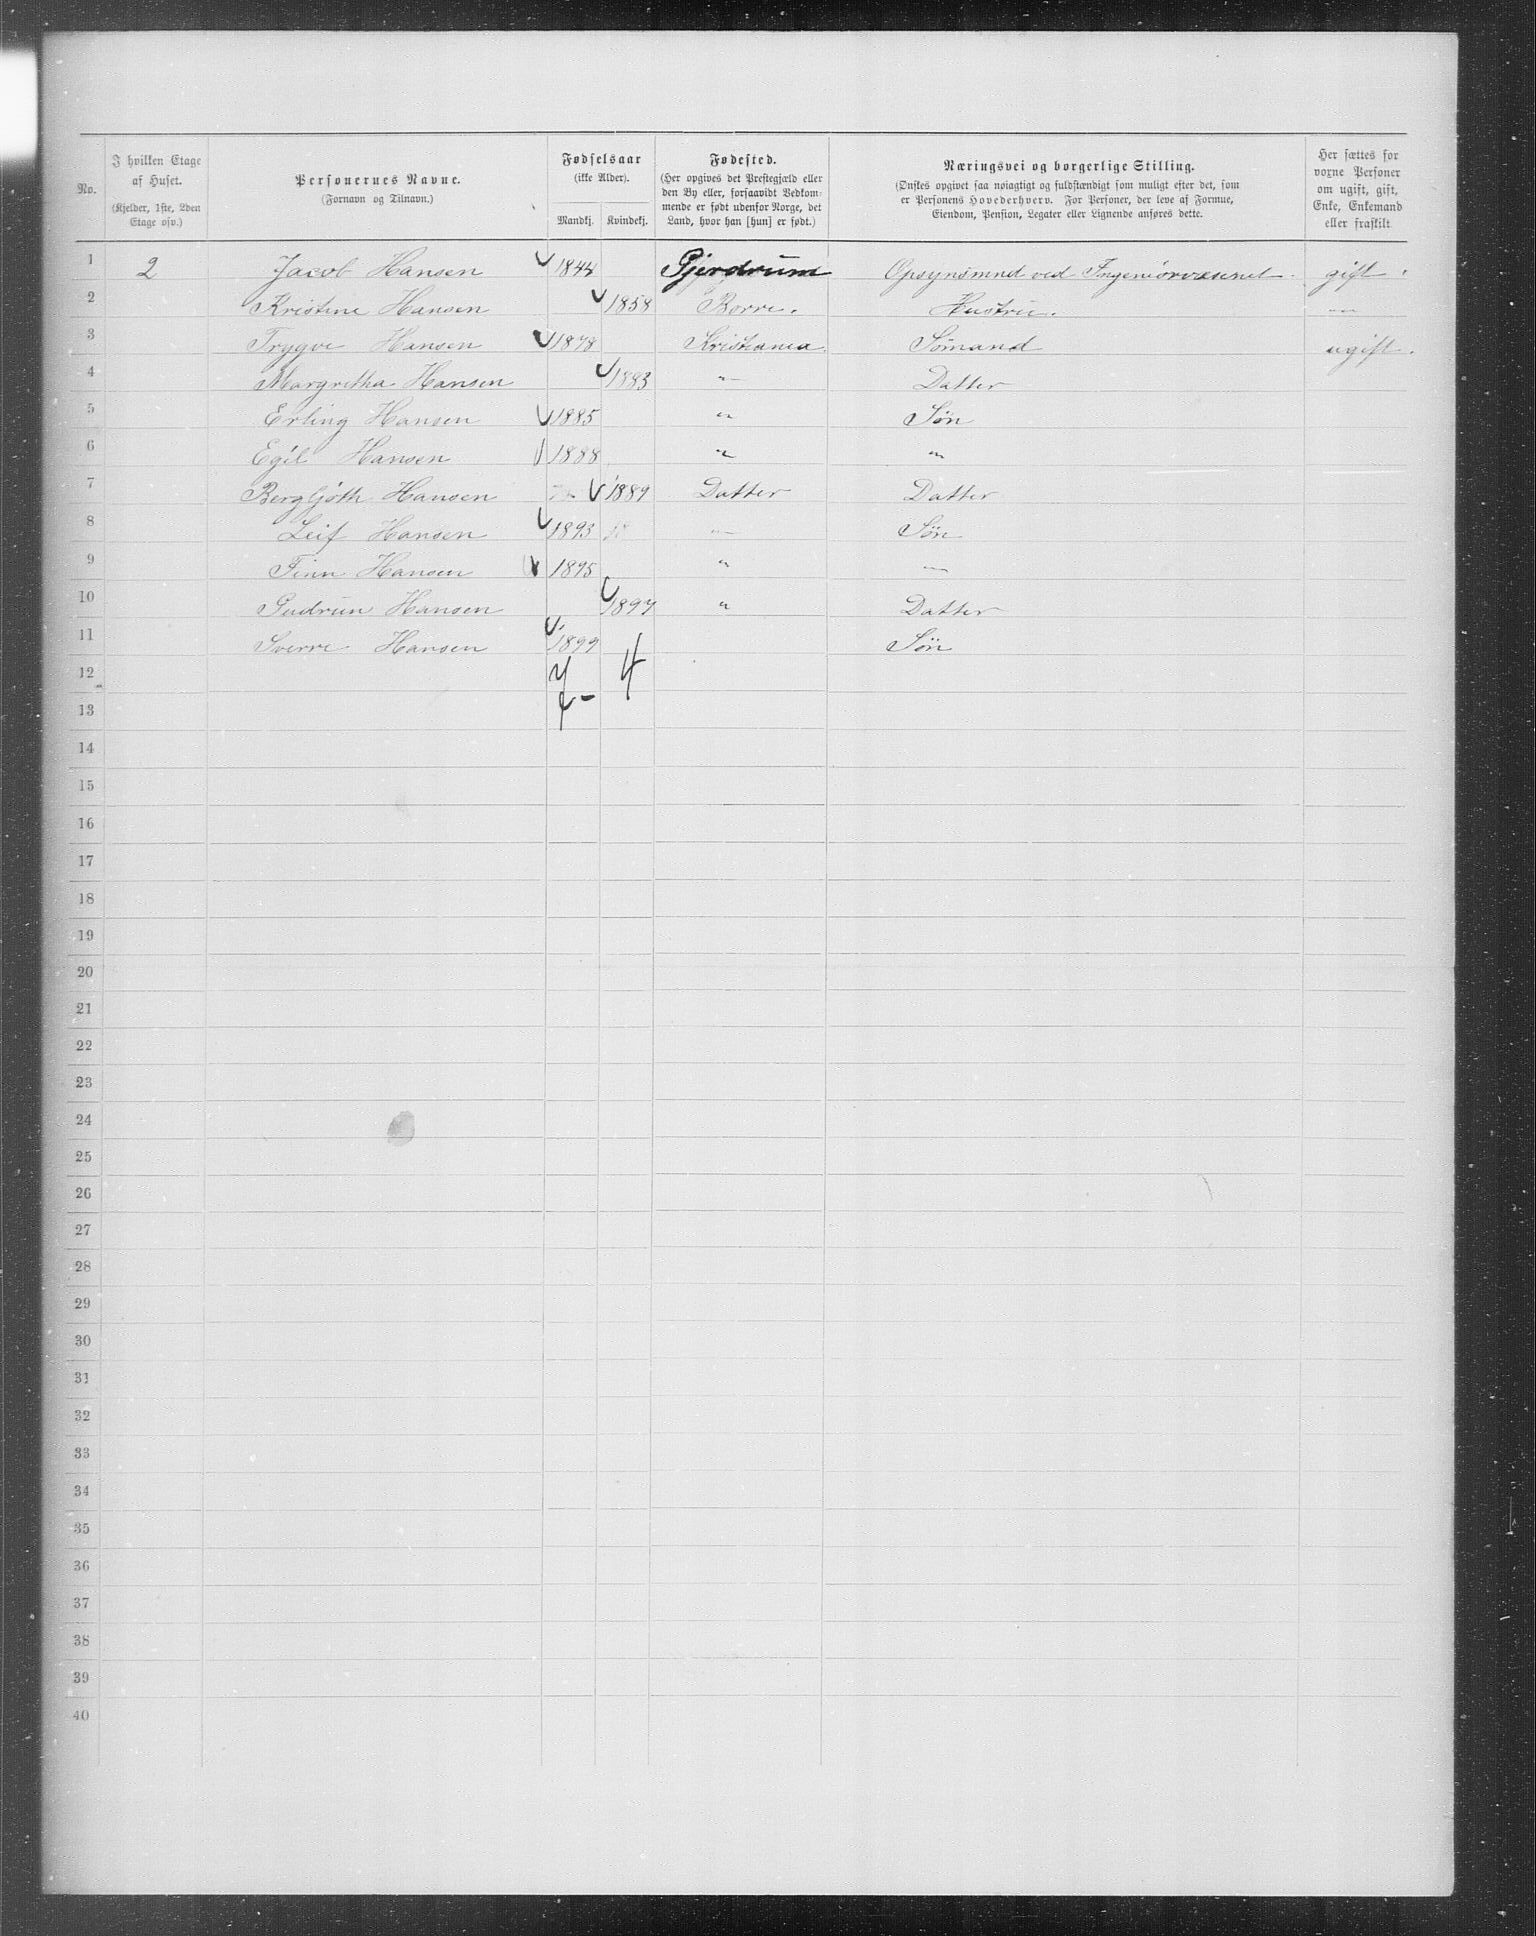 No.
I hvilken Etage af Huset. (Kjelder, 1ste, 2den Etage osv.)
Personernes Navne. (Fornavn og Tilnavn.)
Fødselsaar (ikke Alder). Mandkj. Kvindekj.
Fødested. (Her opgives det Prestegjæld eller den By eller, forsaavidt Vedkommende er født udenfor Norge, det Land, hvor han [hun] er født.)
Næringsvei og borgerlige Stilling. (Ønskes opgivet saa nøiagtigt og fuldstændigt som muligt efter det, som er Personens Hovederhverv. For Personer, der leve af Formue, Eiendom, Pension, Legater eller Lignende anføres dette.)
Her sættes for voxne Personer om ugift, gift, Enke, Enkemand eller fraskilt
1 2 Jacob Hansen 1844 Gjerdrum Opsynsmnd ved Ingeniörvæsenet gift.
2 Kristine Hansen 1858 Borre. Hustrue. -"-
3 Trygve Hansen 1878 Kristiania. Sömand ugift.
4 Margretha Hansen 1883 -"- Datter
5 Erling Hansen 1885 -"- Søn
6 Egil Hansen 1888 -"- -"-
7 Bergljóth Hansen 1889 Datter Datter
8 Leif Hansen 1893 -"- Sön
9 Finn Hansen 1895 -"- -"-
10 Gudrun Hansen 1897 -"- Datter
11 Sverre Hansen 1899 Sön
12 4
13
14
15
16
17
18
19
20
21
22
23
24
25
26
27
28
29
30
31
32
33
34
35
36
37
38
39
40